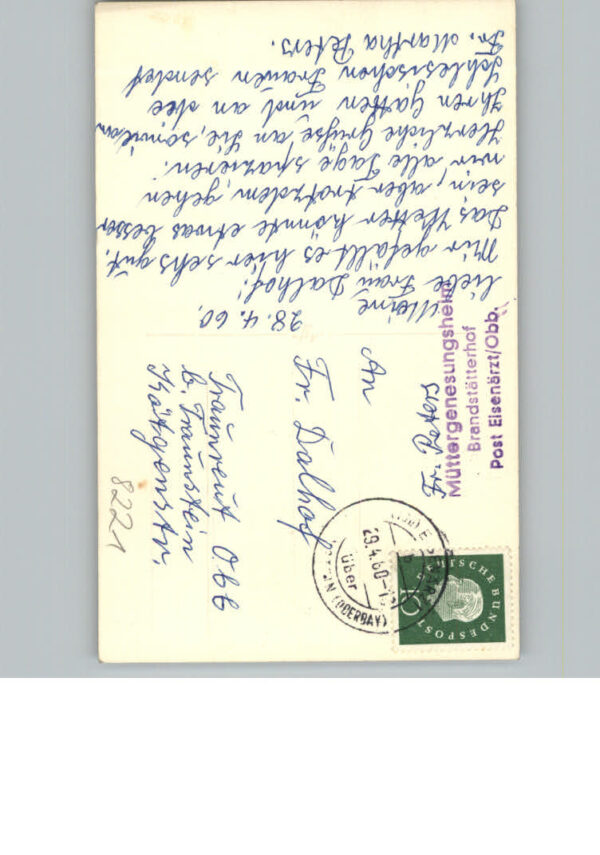 28.4.60.
Meine
liebe Frau Dalhof!
Mir gefällt es hier sehr gut.
Das Wetter könnte etwas besser
sein, aber trotzdem gehen
wir alle Tage spazieren.
Herzliche Grüße an Sie, sowie an
Ihren Gatten und an die
Schlesischen Frauen sendet
Fr. Martha Peters.
Fr. Peters
Müttergenesungsheim
Brandstätterhof
Post Eisenärzt/Obb.
An
Fr. Dalhof
Traunreut Obb
b. Traunstein
8221
29.4.60
über
(OBERBAY)
DEUTSCHE BUNDESPOST